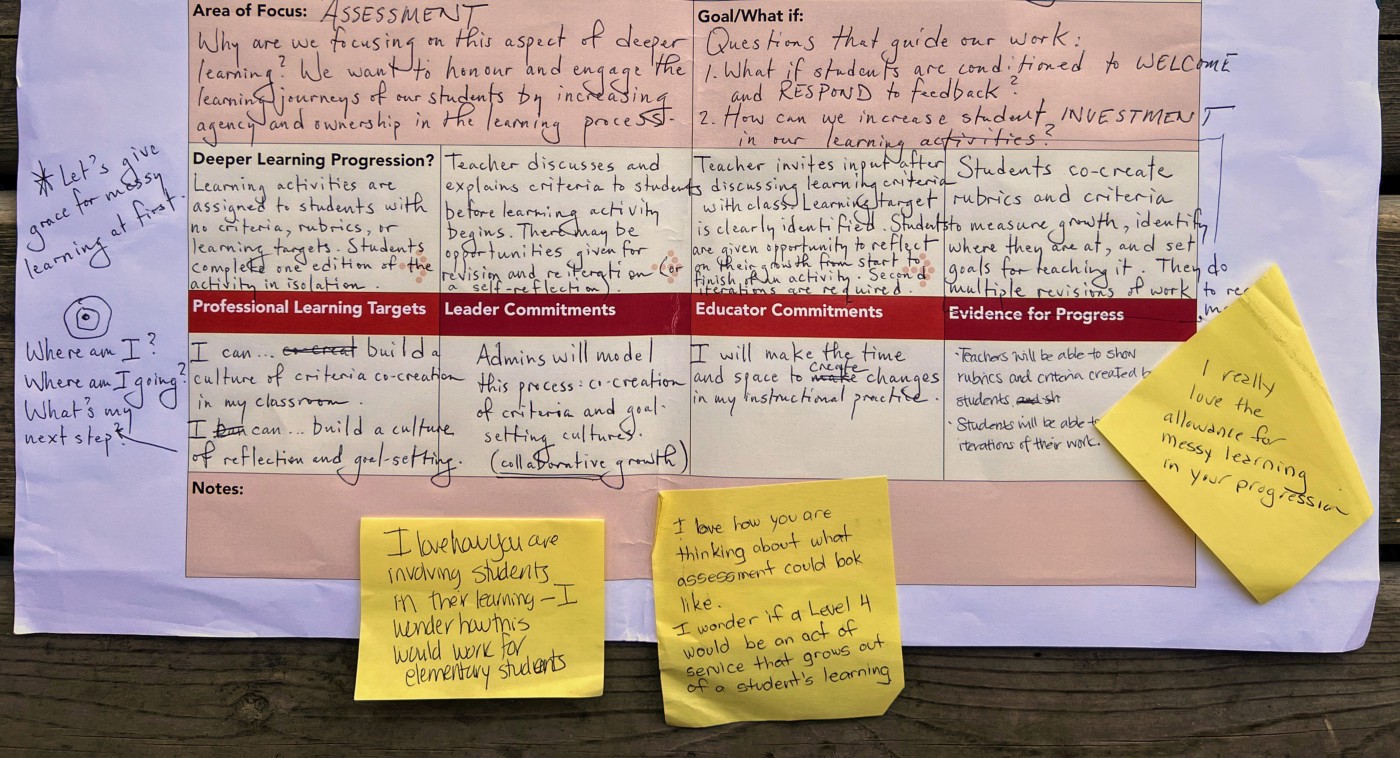 Area of Focus: ASSESSMENT
Why are we focusing on this aspect of deeper
learning? We want to honour and engage the
learning journeys of our students by increasing
agency and ownership in the learning process.
Goal/What if:
Questions that guide our work:
1. What if students are conditioned to WELCOME
and RESPOND to feedback?
2. How can we increase student INVESTMENT
in our learning activities?
* Let's give
grace for messy
learning at first.
Where am I?
Where am I going?
What's my
next step?
Deeper Learning Progression?
Learning activities are
assigned to students with
no criteria, rubrics, or
learning targets. Students
complete one edition of the
activity in isolation.
Teacher discusses and
explains criteria to students
before learning activity
begins. There may be
opportunities given for
revision and reiteration (or
a self-reflection).
Teacher invites input after
discussing learning criteria
with class. Learning target
is clearly identified. Students
are given opportunity to reflect
on their growth from start to
finish of an activity. Second
iterations are required.
Students co-create
rubrics and criteria
to measure growth, identify
where they are at, and set
goals for reaching it. They do
multiple revisions of work to
Professional Learning Targets
I can... co-creat build a
culture of criteria co-creation
in my classroom.
I can can... build a culture
of reflection and goal-setting.
Leader Commitments
Admins will model
this process: co-creation
of criteria and goal-
setting cultures.
(collaborative growth)
Educator Commitments
I will make the time
and space to make create changes
in my instructional practice.
Evidence for Progress
· Teachers will be able to show
rubrics and criteria created
students and sh
· Students will be able
iterations of their work.
Notes:
I love how you are
involving students
in their learning – I
wonder how this
would work for
elementary students
I love how you are
thinking about what
assessment could look
like.
I wonder if a Level 4
would be an act of
service that grows out
of a student's learning
I really
love the
allowance for
messy learning
in your progression